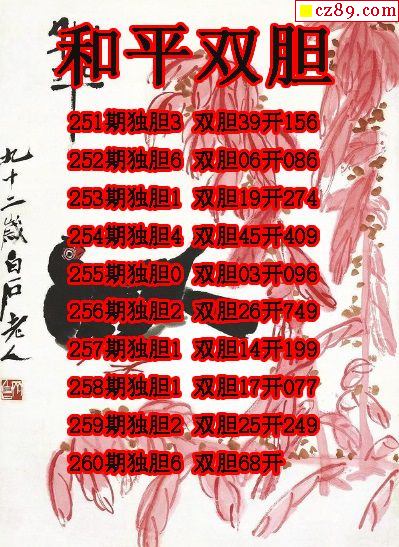 cz89.com
和平双胆
251期独胆3 双胆39开156
252期独胆6 双胆06开086
253期独胆1 双胆19开274
254期独胆4 双胆45开409
255期独胆0 双胆03开096
256期独胆2 双胆26开749
257期独胆1 双胆14开199
258期独胆1 双胆17开077
259期独胆2 双胆25开249
260期独胆6 双胆68开
九十二岁白石老人